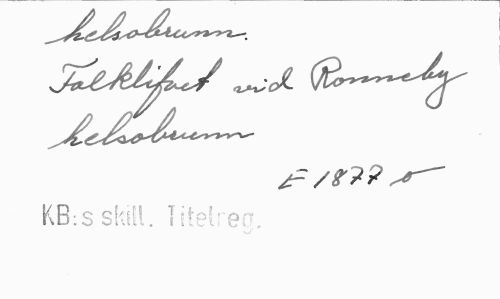 helsobrunn.
Folklifvet vid Ronneby
helsobrunn
E 1877 o
KB:s skill. Titelreg.